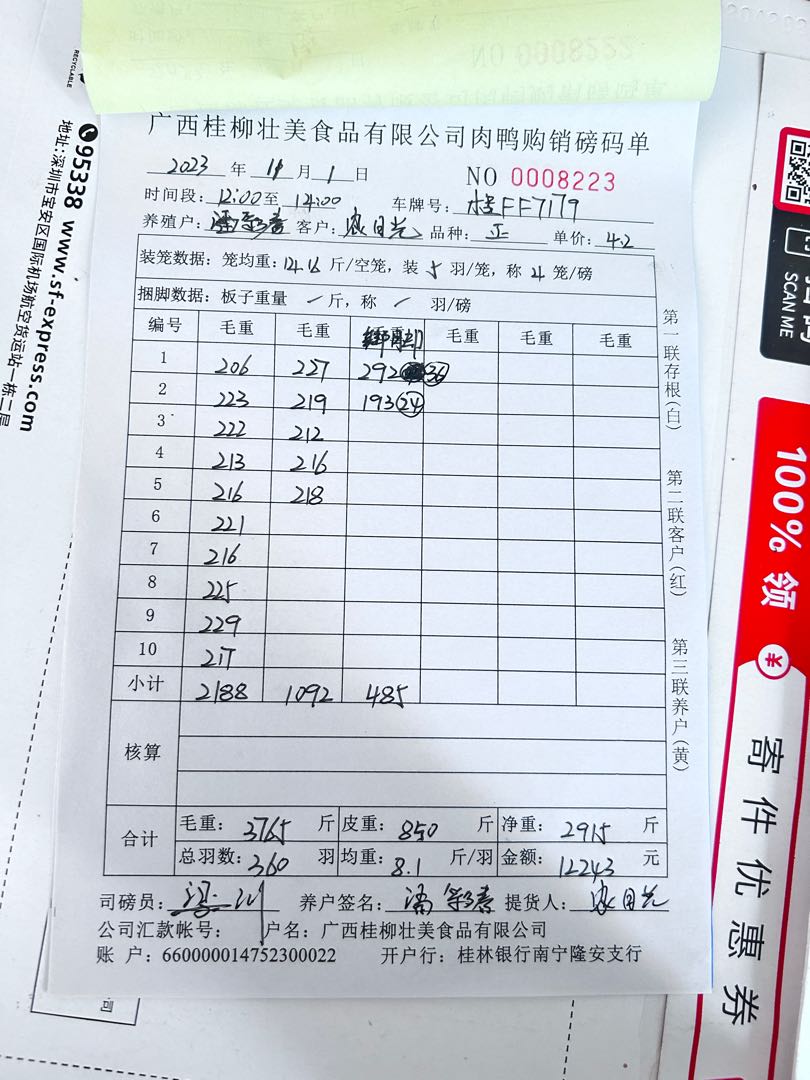 NO 0008222
广西桂柳壮美食品有限公司肉鸭购销磅码单
2023 年 11 月 1 日 NO 0008223
时间段: 12:00 至 14:00 车牌号: 桂FF7179
养殖户: 客户: 农日光 品种: 正 单价: 4.2
装笼数据: 笼均重: 斤/空笼, 装 5 羽/笼, 称 4 笼/磅
捆脚数据: 板子重量 / 斤, 称 / 羽/磅
编号 毛重 毛重 毛重 毛重 毛重
1 206 227 292 36
2 223 219 193 24
3 222 212
4 213 216
5 216 218
6 221
7 216
8 225
9 229
10 217
小计 2188 1092 485
核算
合计 毛重: 3765 斤 皮重: 850 斤 净重: 2915 斤
总羽数: 360 羽 均重: 8.1 斤/羽 金额: 12243 元
司磅员: 养户签名: 提货人: 农日光
公司汇款帐号: 户名: 广西桂柳壮美食品有限公司
账 户: 660000014752300022 开户行: 桂林银行南宁隆安支行
第一联存根(白)
第二联客户(红)
第三联养户(黄)
RECYCLABLE
95338 www.sf-express.com
地址: 深圳市宝安区国际机场航空货运站一栋二层
司
SCAN ME
100% 领
¥
寄件优惠券